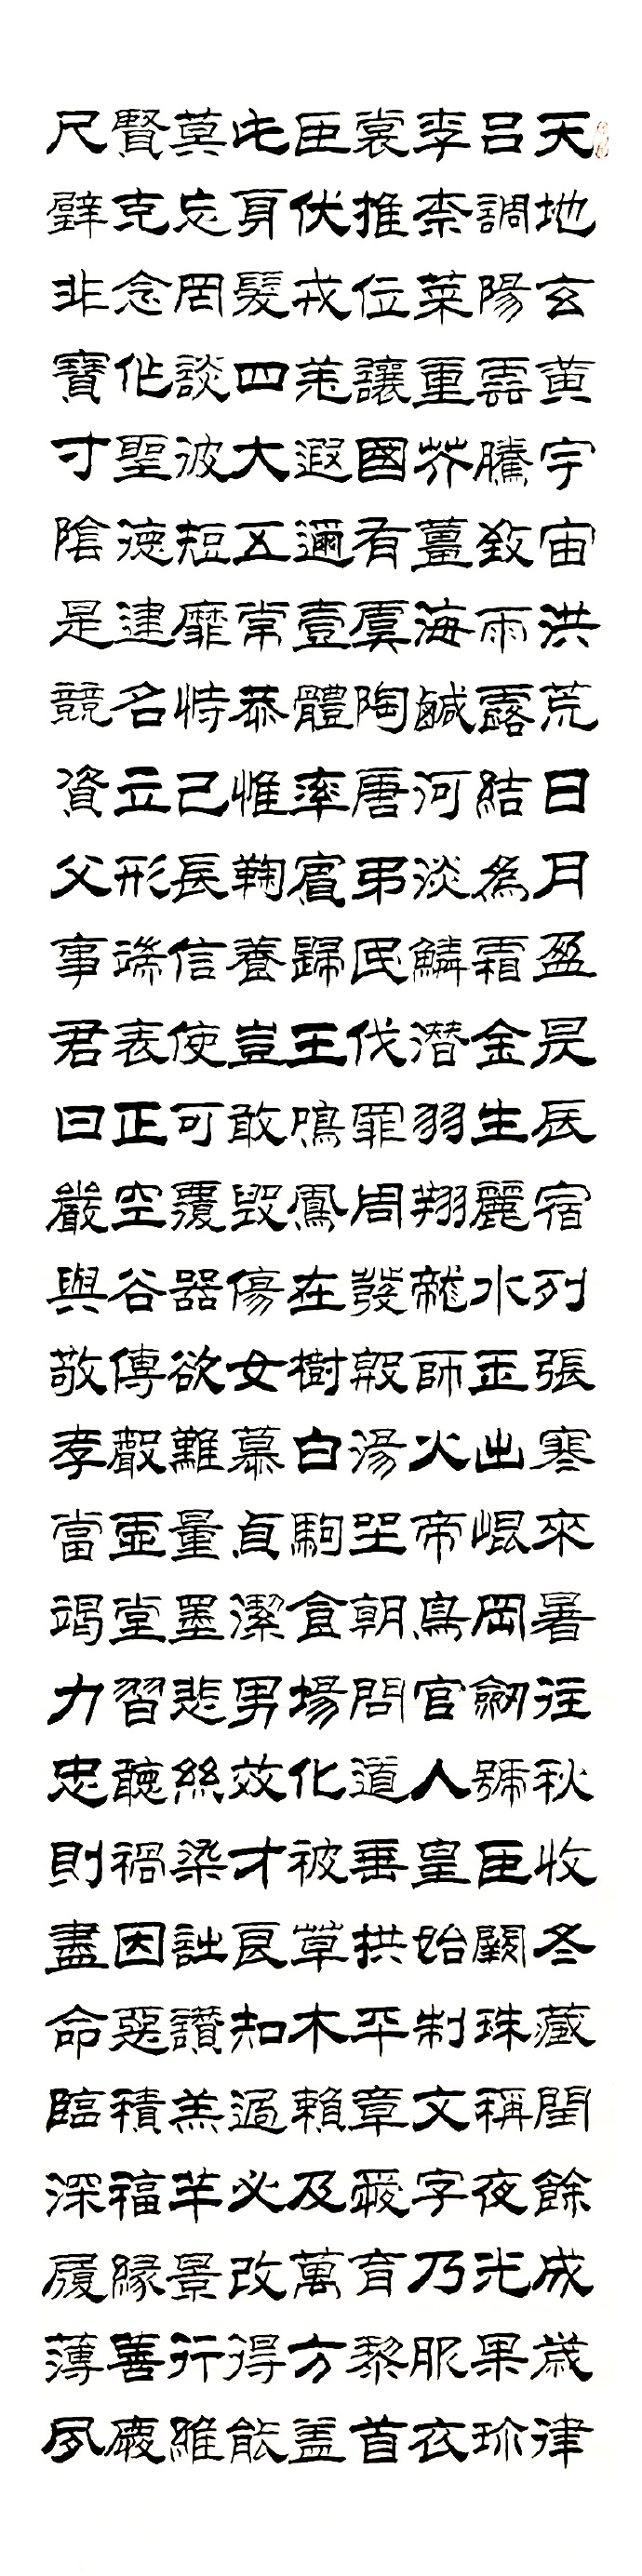 天地玄黃宇宙洪荒日月盈昃辰宿列張寒來暑往秋收冬藏閏餘成歲律
呂調陽雲騰致雨露結為霜金生麗水玉出崐岡劒號巨闕珠稱夜光果珍
李柰菜重芥薑海鹹河淡鱗潛羽翔龍師火帝鳥官人皇始制文字乃服衣
裳推位讓國有虞陶唐弔民伐罪周發殷湯坐朝問道垂拱平章愛育黎首
臣伏戎羌遐邇壹體率賓歸王鳴鳳在樹白駒食場化被草木賴及萬方蓋
此身髮四大五常恭惟鞠養豈敢毀傷女慕貞潔男效才良知過必改得能
莫忘罔談彼短靡恃己長信使可覆器欲難量墨悲絲染詩讚羔羊景行維
賢克念作聖德建名立形端表正空谷傳聲虛堂習聽禍因惡積福緣善慶
尺璧非寶寸陰是競資父事君曰嚴與敬孝當竭力忠則盡命臨深履薄夙